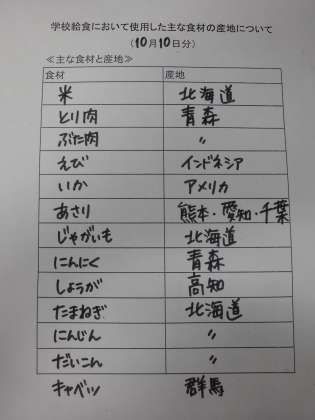 学校給食において使用した主な食材の産地について
（10月10日分）
≪主な食材と産地≫
食材 産地
米 北海道
とり肉 青森
ぶた肉 〃
えび インドネシア
いか アメリカ
あさり 熊本・愛知・千葉
じゃがいも 北海道
にんにく 青森
しょうが 高知
たまねぎ 北海道
にんじん 〃
だいこん 〃
キャベツ 群馬